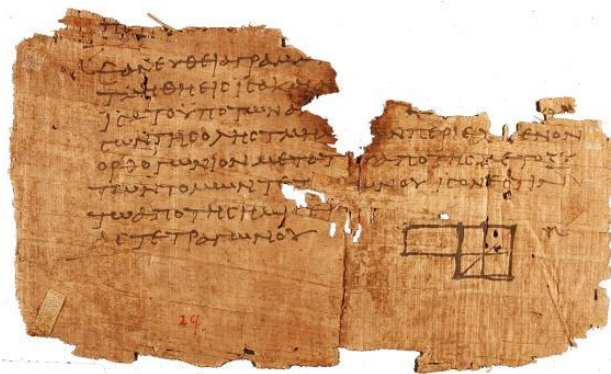 ΕΑΝ ΕΥΘΕΙΑ ΓΡΑΜ
ΤΜΗΘΗ ΕΙϹ ΙϹΑ ΚΑΙ
ΙϹΑ ΤΟ ΥΠΟ ΤΩΝ Α
ΙϹΩΝ ΤΗϹ ΟΛΗϹ ΤΜΗ ΩΝ ΠΕΡΙΕΧΟΜΕΝΟΝ
ΟΡΘΟΓΩΝΙΟΝ ΜΕΤΑ ΤΟΥ ΑΠΟ ΤΗϹ ΜΕΤΟΞΥ
ΤΩΝ ΤΟΜΩΝ ΤΕΤ ΩΝΟΥ ΙϹΟΝ ΕϹΤΙΝ
ΤΩ ΑΠΟ ΤΗϹ ΗΜΙϹ
ΑϹ ΤΕΤΡΑΓΩΝΟΥ